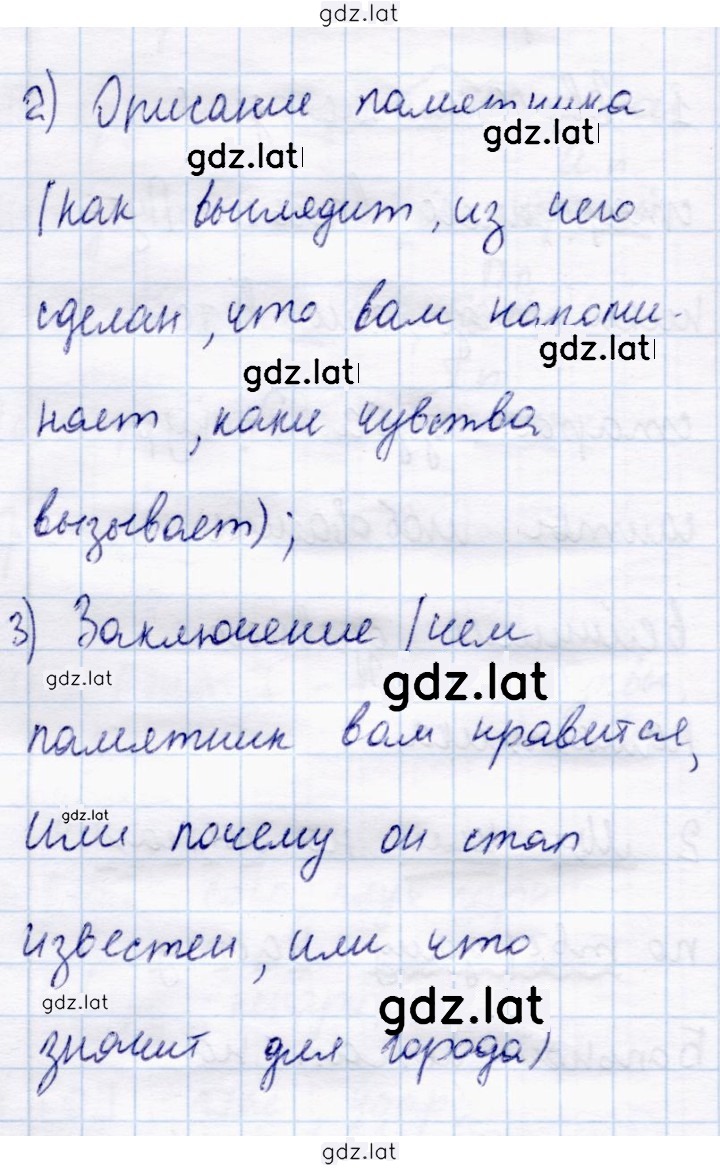 gdz.lat
2) Описание памятника
gdz.lat
gdz.lat
(как выглядит, из чего
сделан, что вам напоми-
gdz.lat
gdz.lat
нает, каки чувства
вызывает);
3) Заключение (чем
gdz.lat
gdz.lat
памятник вам нравится,
gdz.lat
или почему он стал
известен, или что
gdz.lat
gdz.lat
значит для города)
gdz.lat